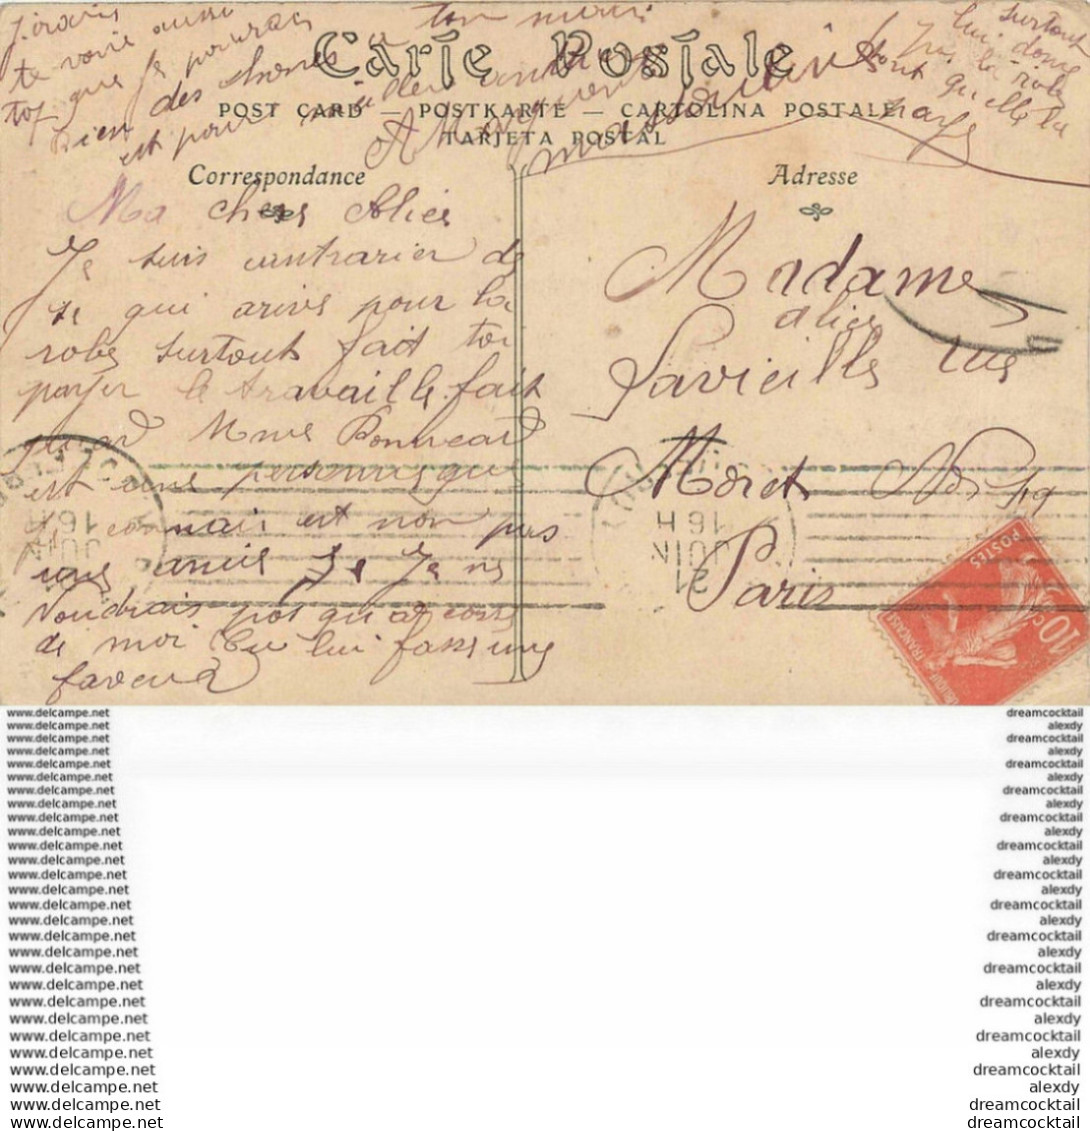 J'irais
te voir aussi
tot que je pourrai
bien des choses a ton mari
est pour
surtout
lui donne
pas la robe
tout qu'elle la
paye
Carte Postale
POST CARD — POSTKARTE — CARTOLINA POSTALE
TARJETA POSTAL
Correspondance
Adresse
Ma cher Alice
Je suis contrarier de
se qui arive pour la
robe surtout fait toi
payer le travaille fait
quand Mme Bonneau
est une personne que
je connais est non pas
une amie Je Je ne
voudrais pas qu'a cose
de moi tu lui fasse une
faveur
Madame
alice
Lavieille rue
Moret No 19
Paris
16 H
JUIN
16 H
JUIN
21
POSTES
10
www.delcampe.net
www.delcampe.net
www.delcampe.net
www.delcampe.net
www.delcampe.net
www.delcampe.net
www.delcampe.net
www.delcampe.net
www.delcampe.net
www.delcampe.net
www.delcampe.net
www.delcampe.net
www.delcampe.net
www.delcampe.net
www.delcampe.net
www.delcampe.net
www.delcampe.net
www.delcampe.net
www.delcampe.net
www.delcampe.net
www.delcampe.net
www.delcampe.net
www.delcampe.net
www.delcampe.net
www.delcampe.net
www.delcampe.net
www.delcampe.net
dreamcocktail
alexdy
dreamcocktail
alexdy
dreamcocktail
alexdy
dreamcocktail
alexdy
dreamcocktail
alexdy
dreamcocktail
alexdy
dreamcocktail
alexdy
dreamcocktail
alexdy
dreamcocktail
alexdy
dreamcocktail
alexdy
dreamcocktail
alexdy
dreamcocktail
alexdy
dreamcocktail
alexdy
dreamcocktail
dreamcocktail